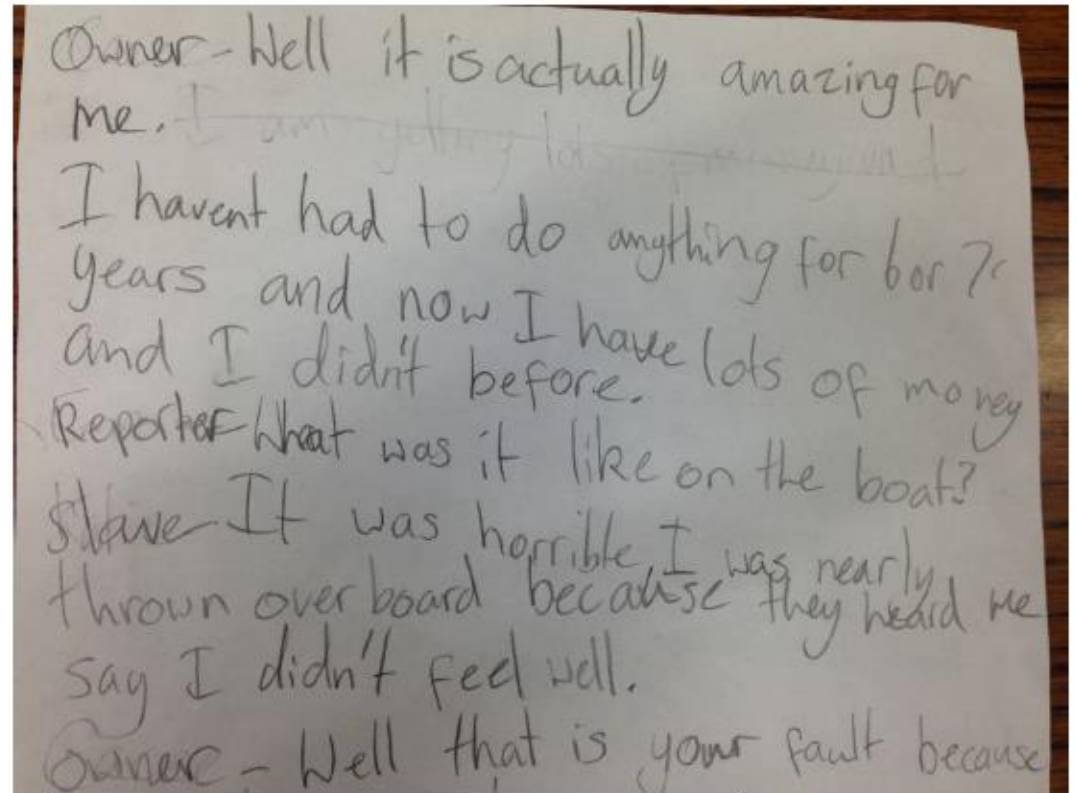 Owner - Well it is actually amazing for
me. I am getting lots of money and
I havent had to do anything for 6 or 7
years and now I have lots of money
and I didn't before.
Reporter - What was it like on the boat?
Slave - It was horrible, I was nearly
thrown over board because they heard me
say I didn't feel well.
Owner - Well that is your fault because